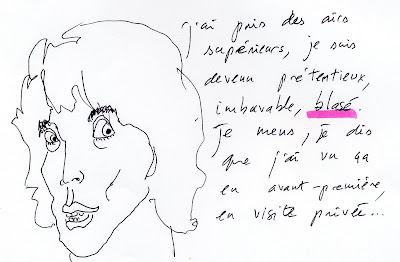 j'ai pris des airs
supérieurs, je suis
devenu prétentieux,
imbavable, blasé.
Je mens, je dis
que j'ai vu ça
en avant-première,
en visite privée...